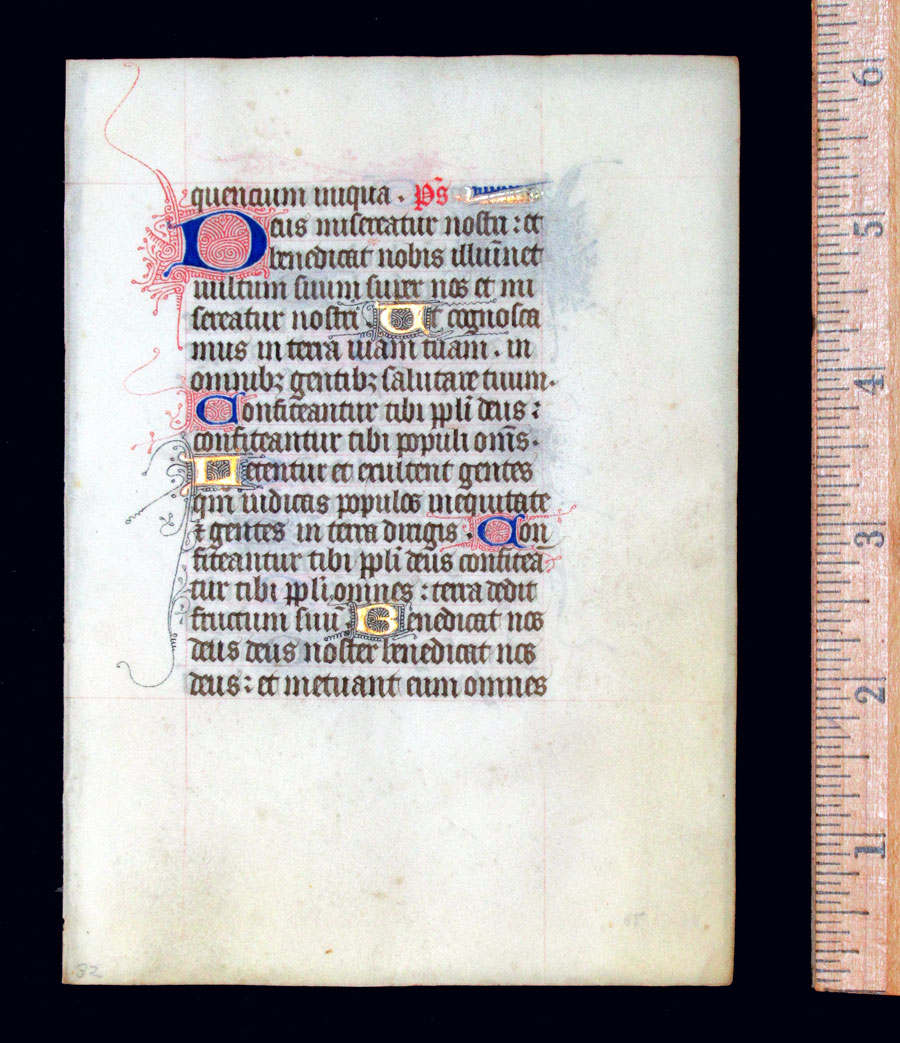 quencium iniqua. p̄s
Deus misereatur nostri: et
benedicat nobis illuīnet
vultum suum super nos et mi
sereatur nostri. Ut cognosca
mus in terra viam tuam. in
omnibꝫ gentibꝫ salutare tuum.
Confiteantur tibi ppl̄i deus:
confiteantur tibi populi om̄s.
Letentur et exultent gentes
qm̄ iudicas populos in equitate
⁊ gentes in terra dirigis. Con
fiteantur tibi ppl̄i deus confiteā
tur tibi ppl̄i omnes: terra dedit
fructum suū. Benedicat nos
deus deus noster benedicat nos
deus: et metuant eum omnes
32
6
5
4
3
2
1